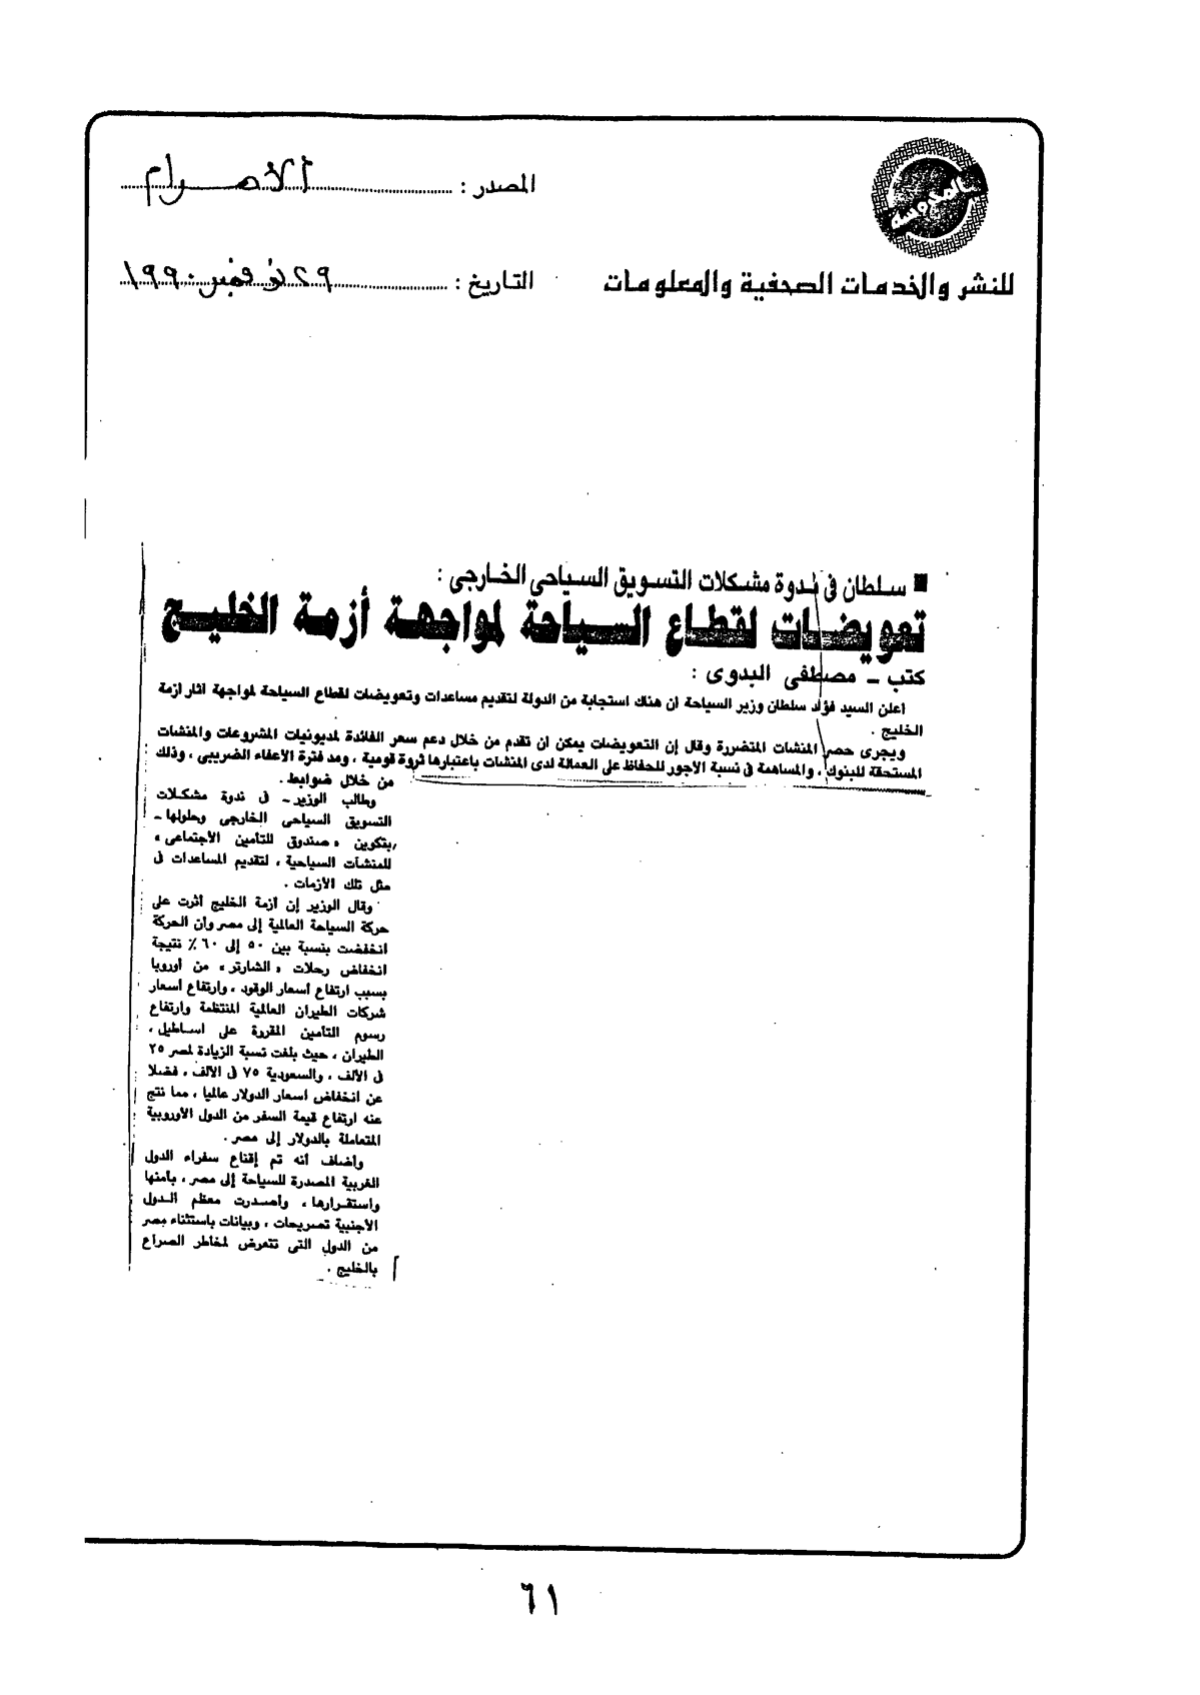 المصدر : الأهرام
المدرسة
للنشر والخدمات الصحفية والمعلومات
التاريخ : ٢٩ نوفمبر ١٩٩٠
سلطان فى ندوة مشكلات التسويق السياحى الخارجى :
تعويضات لقطاع السياحة لمواجهة أزمة الخليج
كتب ـ مصطفى البدوى :
اعلن السيد فؤاد سلطان وزير السياحة ان هناك استجابة من الدولة لتقديم مساعدات وتعويضات لقطاع السياحة لمواجهة اثار ازمة
الخليج .
ويجرى حصر المنشات المتضررة وقال إن التعويضات يمكن ان تقدم من خلال دعم سعر الفائدة لمديونيات المشروعات والمنشات
المستحقة للبنوك ، والمساهمة فى نسبة الاجور للحفاظ على العمالة لدى المنشات باعتبارها ثروة قومية ، ومد فترة الاعفاء الضريبى ، وذلك
من خلال ضوابط .
وطالب الوزير ـ فى ندوة مشكلات
التسويق السياحى الخارجى وحلولها ـ
بتكوين « صندوق للتأمين الأجتماعى »
للمنشآت السياحية ، لتقديم المساعدات فى
مثل تلك الأزمات .
وقال الوزير إن ازمة الخليج اثرت على
حركة السياحة العالمية إلى مصر وأن الحركة
انخفضت بنسبة بين ٥٠ إلى ٦٠ ٪ نتيجة
انخفاض رحلات « الشارتر » من أوروبا
بسبب ارتفاع اسعار الوقود ، وارتفاع اسعار
شركات الطيران العالمية المنتظمة وارتفاع
رسوم التأمين المقررة على اساطيل ،
الطيران ، حيث بلغت نسبة الزيادة لمصر ٢٥
فى الألف ، والسعودية ٧٥ فى الألف ، فضلا
عن انخفاض اسعار الدولار عالميا ، مما نتج
عنه ارتفاع قيمة السفر من الدول الأوروبية
المتعاملة بالدولار إلى مصر .
وأضاف أنه تم إقناع سفراء الدول
الغربية المصدرة للسياحة إلى مصر ، بأمنها
واستقرارها ، وأصدرت معظم الدول
الأجنبية تصريحات ، وبيانات باستثناء مصر
من الدول التى تتعرض لمخاطر الصراع
بالخليج .
٦١